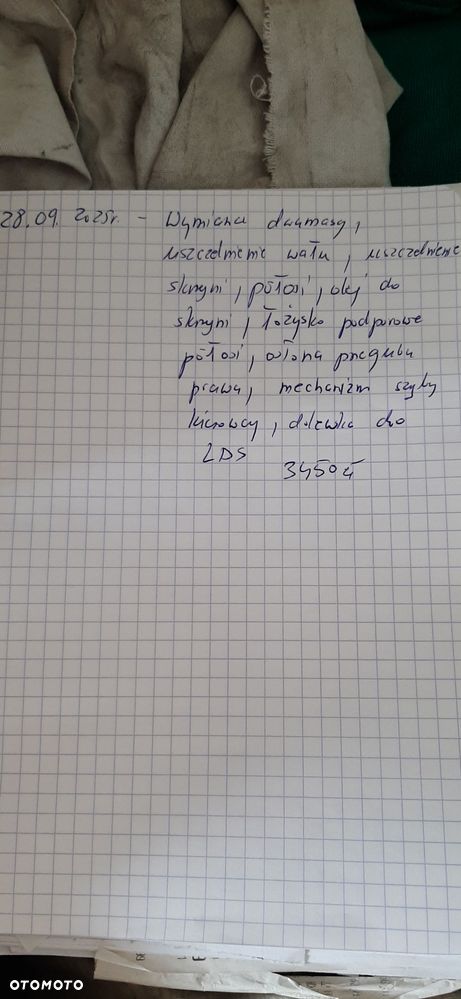 28.09. 2025r. - Wymiana dwumasy,
uszczelnienie wału, uszczelnienie
skrzyni, półosi, olej do
skrzyni, łożysko podporowe
półosi, osłona przegubu
prawa, mechanizm szyby
kierowcy, dolewka do
LDS
3450 zł
OTOMOTO